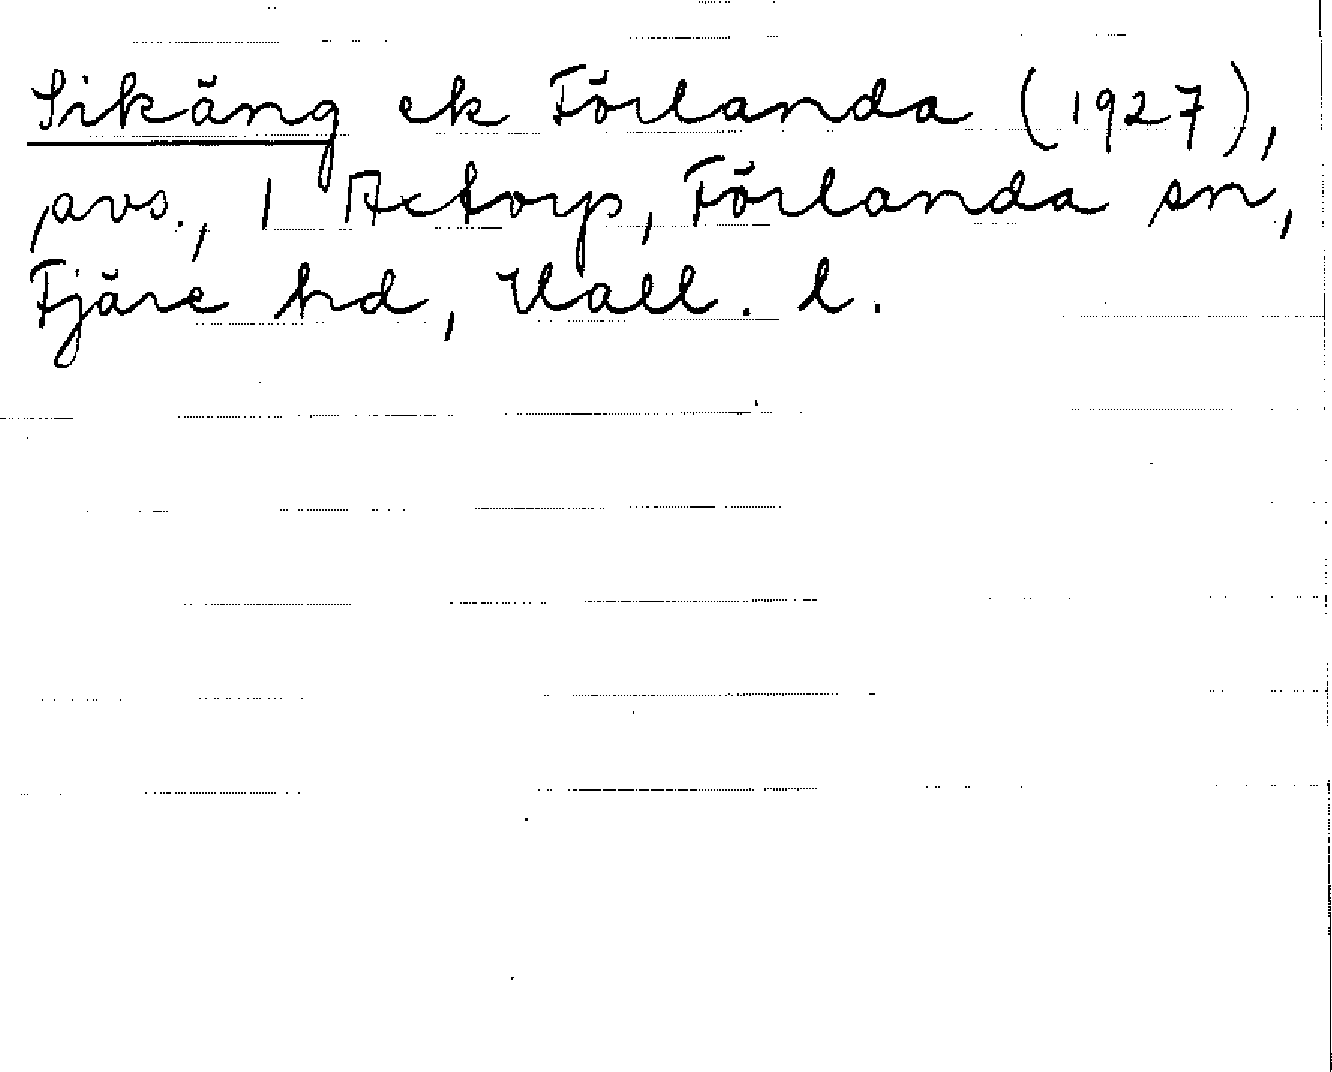 Sikäng ek Förlanda (1927),
avs., 1 Actorp, Förlanda sn,
Fjäre hd, Hall. l.